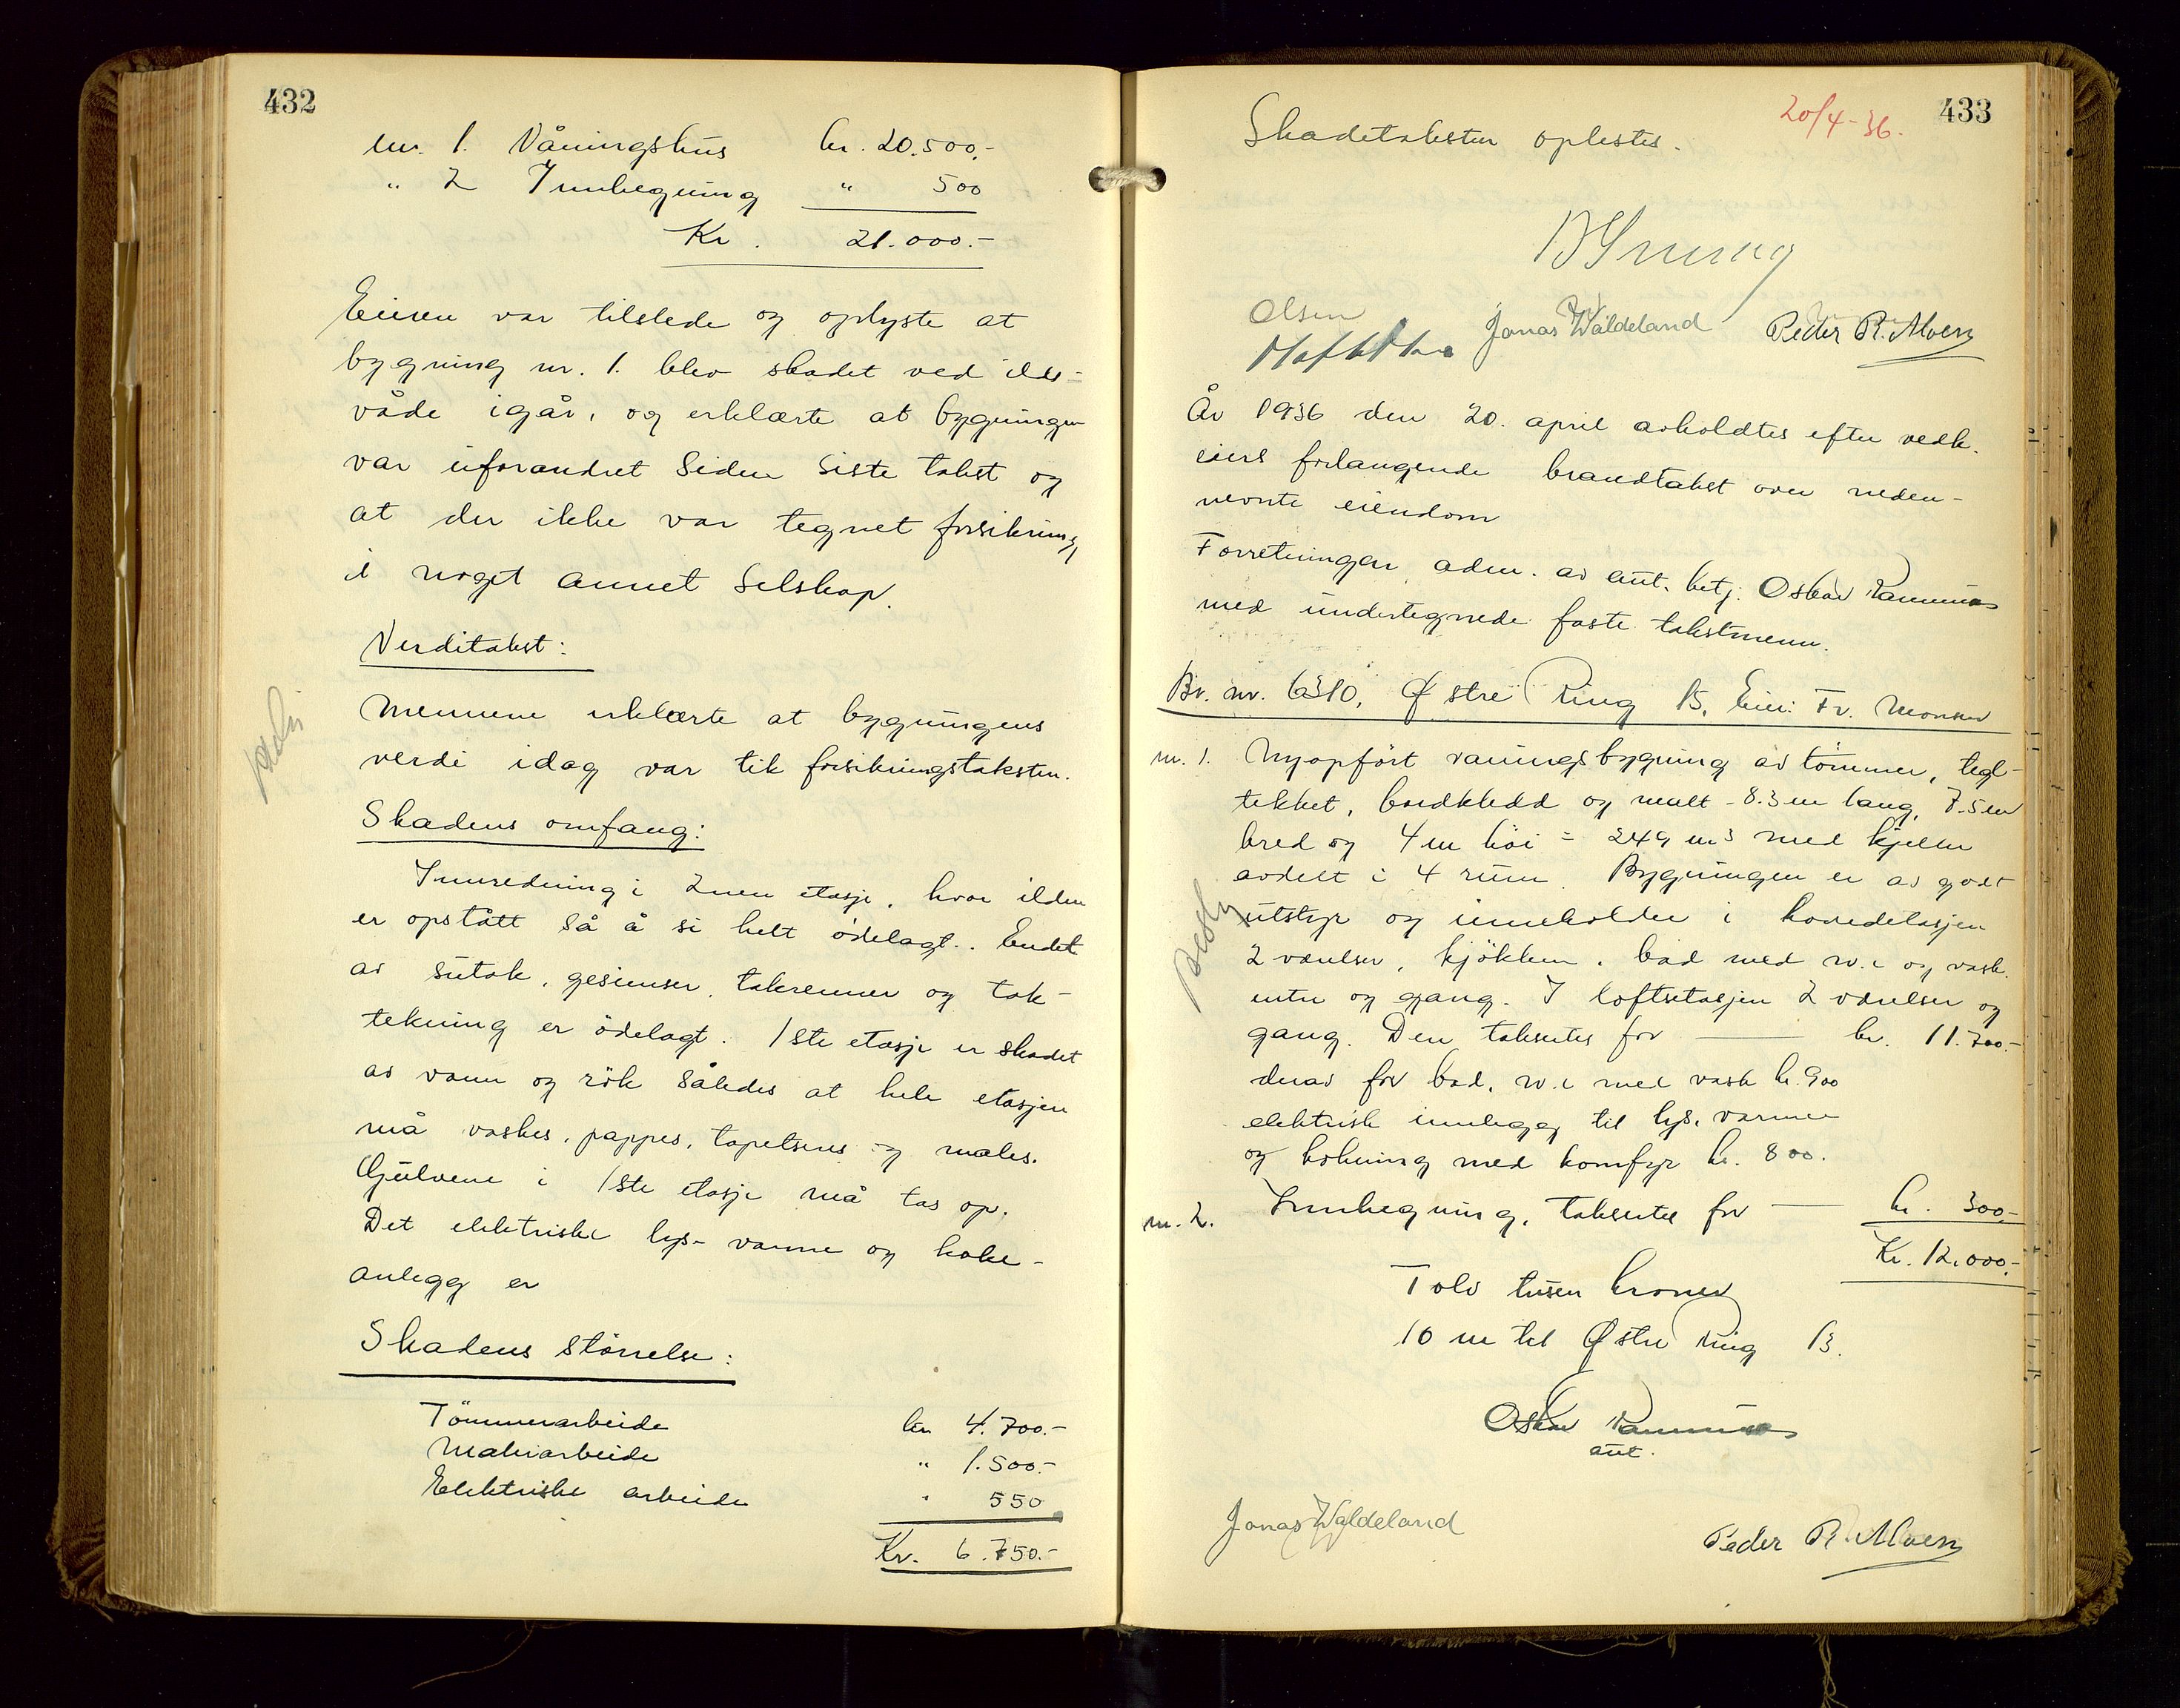 432
nr. 1. Våningshus kr. 20.500,-
" 2 Innhegning " 500
Kr. 21.000.-
Eieren var tilstede og oplyste at
bygning nr. 1. blev skadet ved ilds-
våde igår, og erklærte at bygningen
var uforandret siden siste takst og
at der ikke var tegnet forsikring
i noget annet selskap.
Verditakst:
Mennene erklærte at bygningens
verdi idag var lik forsikringstaksten.
Skadens omfang:
Innredning i 2nen etasje, hvor ilden
er opstått så å si helt ödelagt. Endel
av sutak, gesimser, takrenner og tak-
tekning er ödelagt. 1ste etasje er skadet
av vann og rök således at hele etasjen
må vaskes, pappes, tapetseres og males.
Gulvene i 1ste etasje må tas op.
Det elektriske lys- varme og koke-
anlegg er
Skadens störrelse:
Tömmerarbeide kr 4.700.-
Malerarbeide " 1.500.-
Elektriske arbeider " 550
Kr. 6.750.-
20/4-36. 433
Skadetaksten oplestes.
Olsen Jonas Waldeland Peder R. Moen
År 1936 den 20. april avholdtes efter vedk.
eiers forlangende brandtakst over neden-
nevnte eiendom
Forretningen adm. av aut. betj. Oskar
med undertegnede faste takstmenn.
Br. nr. 6310, Østre Ring 15, Eier: Fr. Monsen
nr. 1. Nyopfört våningsbygning av tömmer, tegl-
tekket, bordkledd og malt - 8.3 m lang, 7.5 m
bred og 4 m höi = 249 m3 med kjeller
avdelt i 4 rum. Bygningen er av godt
utstyr og inneholder i hovedetasjen
2 værelser, kjökken, bad med w.c og vask
entre og gang. I loftsetasjen 2 værelser og
gang. Den takseres for kr. 11.700.-
derav for bad, w.c med vask kr. 900
elektrisk innlegg til lys, varme
og kokning med komfyr kr. 800.
nr. 2. Innhegning, takseres for kr. 300.-
Kr. 12.000.-
Tolv tusen kroner
10 m til Østre Ring 13.
Oskar
aut.
Jonas Waldeland Peder R. Moen